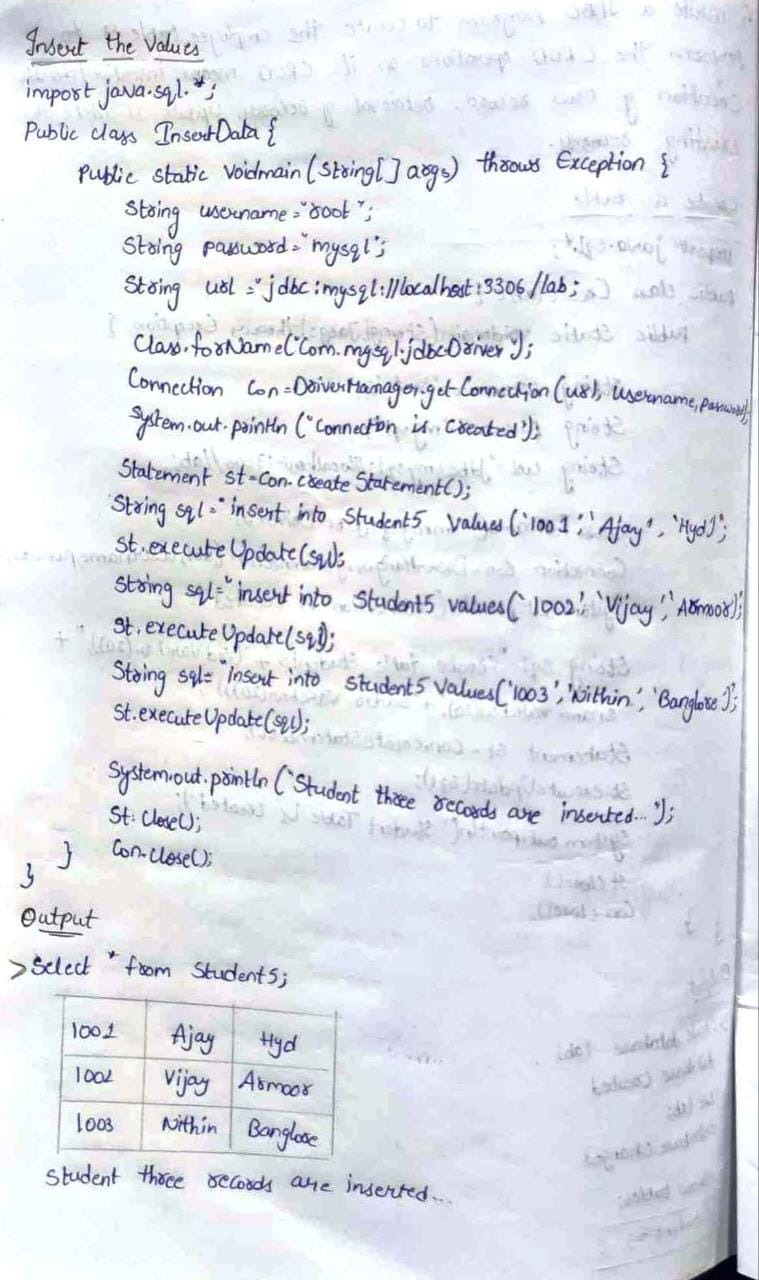 Insert the Values
import java.sql.*;
Public class InsertData {
Public static Voidmain (String[] args) throws Exception {
String username="root";
String password="mysql";
String url="jdbc:mysql://localhost:3306/lab;
Class.forName("Com.mysql.jdbc.Driver");
Connection Con=DriverManager.getConnection(url, username, password);
System.out.println ("Connection is Created");
Statement st=Con.createStatement();
String sql="insert into Student5 values('1001','Ajay','Hyd)";
St.executeUpdate(sql);
String sql="insert into Student5 values('1002','Vijay','Armoor);
St.executeUpdate(sql);
String sql="insert into Student5 Values('1003','Nithin','Banglore');
St.executeUpdate(sql);
System.out.println ("Student three records are inserted...");
St.Close();
} Con.Close();
}
Output
>Select * from Student5;
1001 Ajay Hyd
1002 Vijay Armoor
1003 Nithin Banglore
Student three records are inserted...